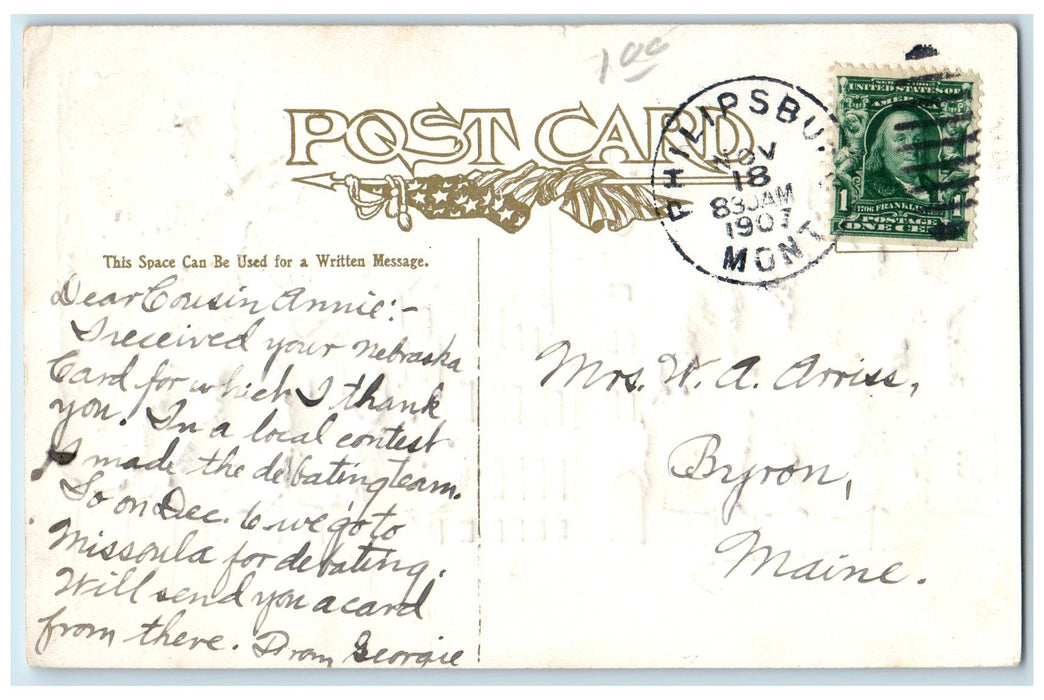 1 00
POST CARD
PHILIPSBU
NOV
18
830AM
1907
MONT
UNITED STATES OF
AMERICA
1
FRANKLIN
POSTAGE
ONE CENT
This Space Can Be Used for a Written Message.
Dear Cousin Annie:-
I received your Nebraska
Card for which I thank
you. In a local contest
I made the debating team.
So on Dec. 6 we go to
Missoula for debating.
Will send you a card
from there. From Georgie
Mrs. W. A. Arriss,
Byron,
Maine.